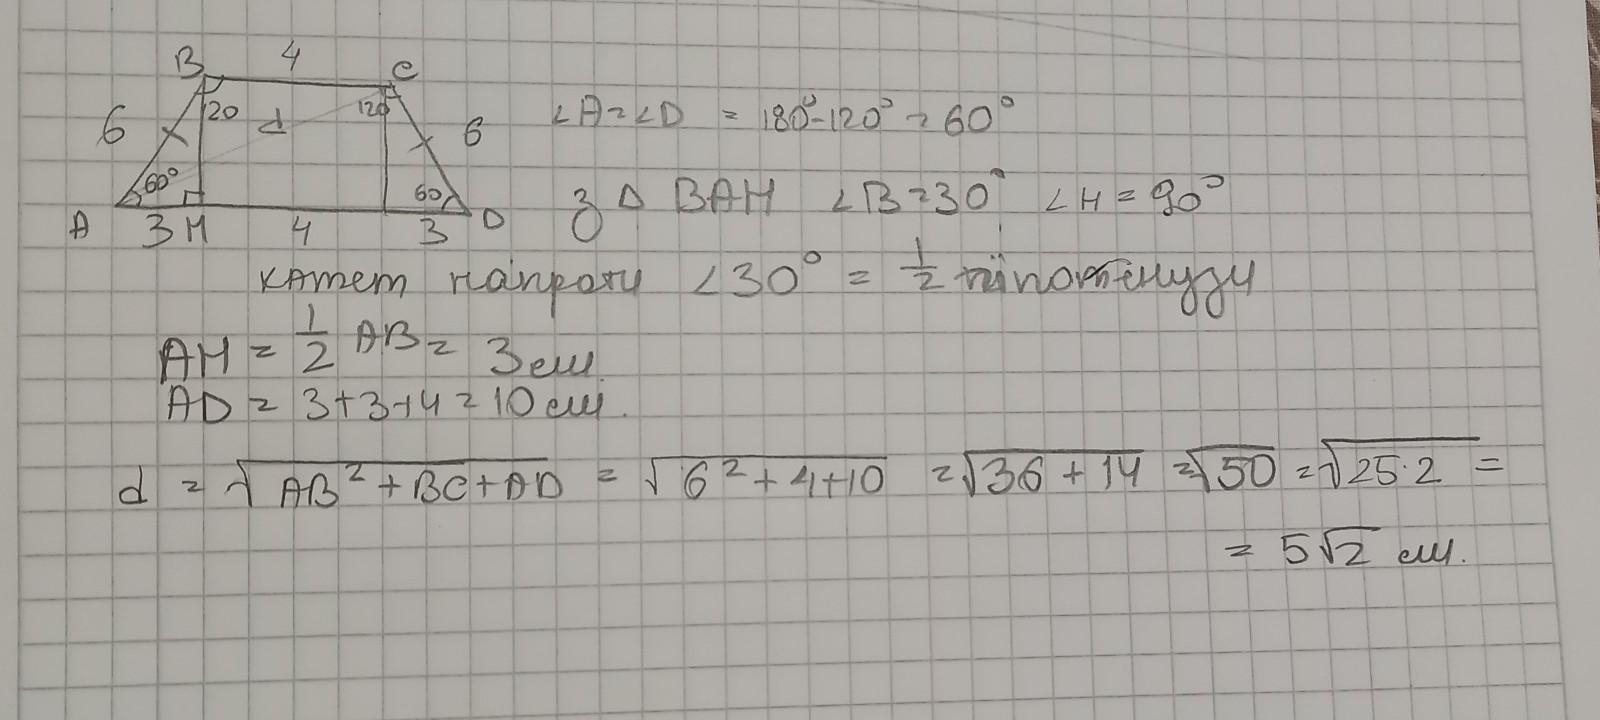 B 4 C
6 120 d 120 6 ∠A=∠D = 180°-120°=60°
60° 60 З Δ BAH ∠B=30° ∠H=90°
A 3 H 4 3 D
катет напроти ∠30° = 1/2 гіпотенузи
AH = 1/2 AB = 3см.
AD = 3+3+4=10см.
d = √AB²+BC+AD = √6²+4+10 =√36+14 =√50=√25·2 =
= 5√2 см.